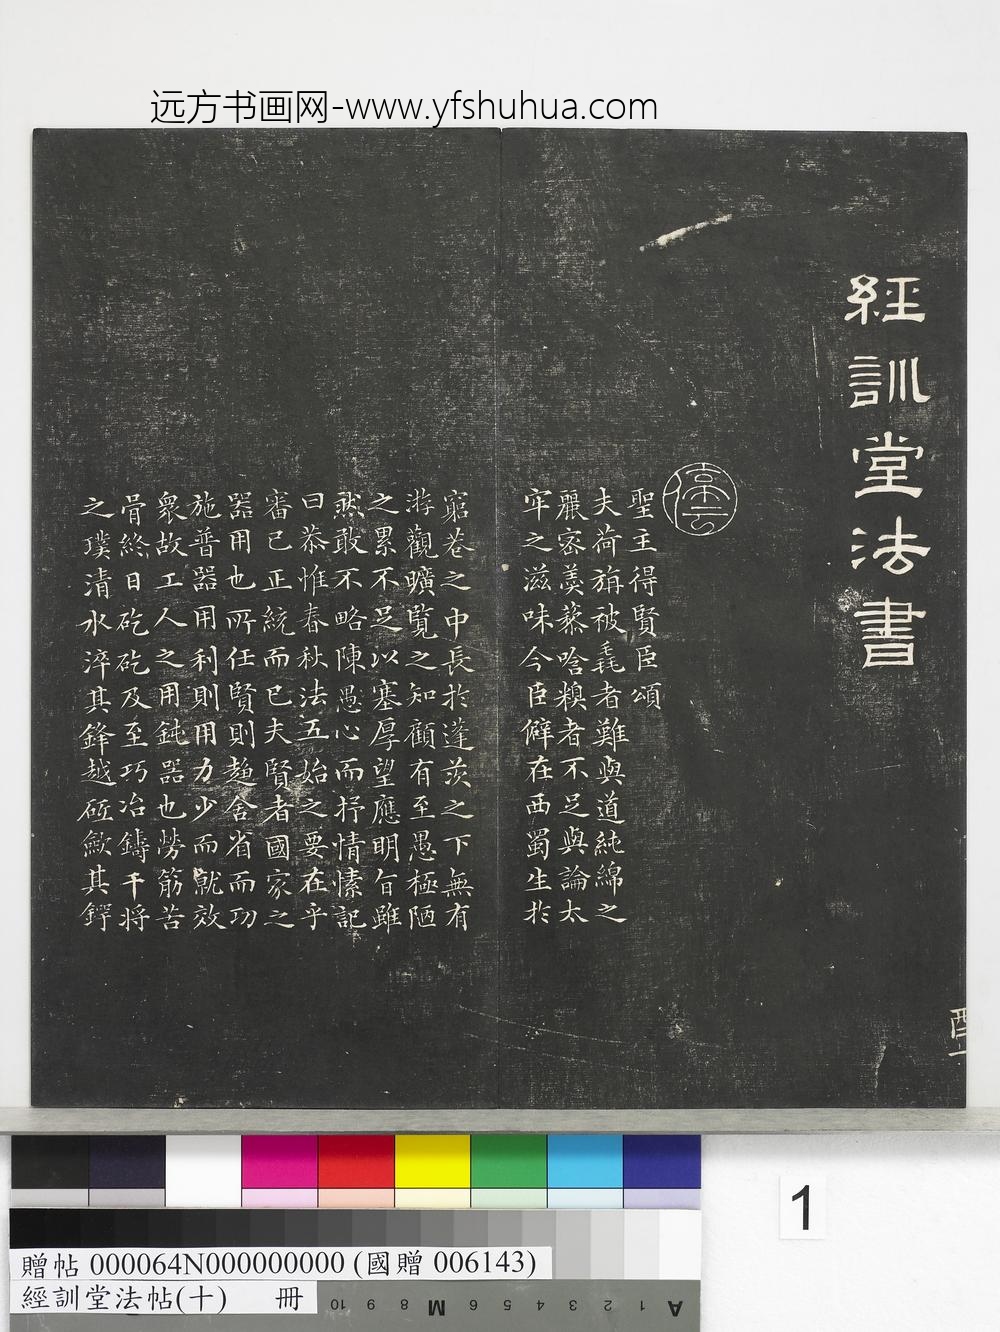 远方书画网-www.yfshuhua.com
經訓堂法書
酉一
聖王得賢臣頌
夫荷旃被毳者難與道純綿之
麗密羹藜唅糗者不足與論太
牢之滋味今臣僻在西蜀生於
窮巷之中長於蓬茨之下無有
游觀曠覽之知顧有至愚極陋
之累不足以塞厚望應明旨雖
然敢不略陳愚心而抒情愫記
曰恭惟春秋法五始之要在乎
審己正統而已夫賢者國家之
器用也所任賢則趨舍省而功
施普器用利則用力少而就效
衆故工人之用鈍器也勞筋苦
骨終日矻矻及至巧冶鑄干將
之璞清水淬其鋒越砥斂其鍔
1
贈帖 000064N000000000 (國贈 006143)
經訓堂法帖(十) 冊
10 9 8 M 6 5 4 3 2 1 A